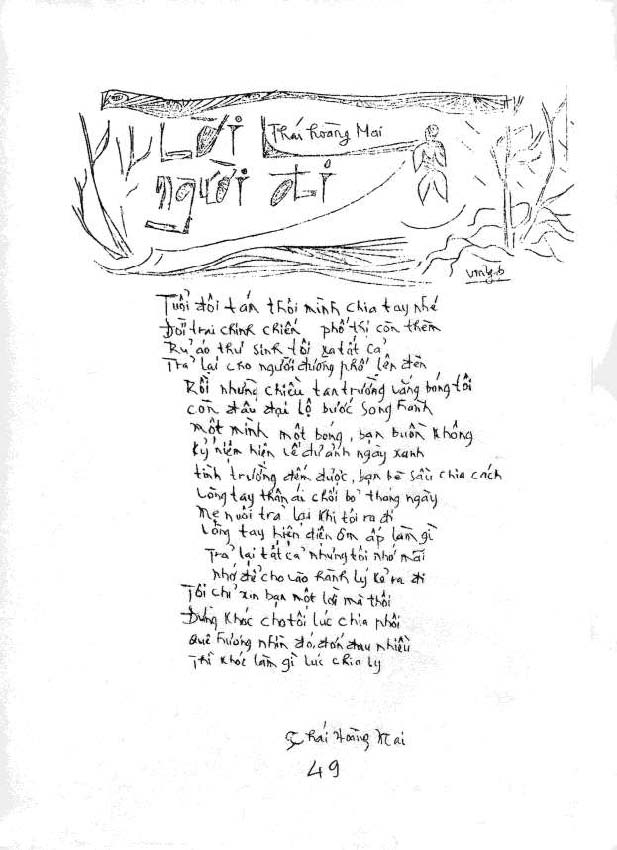 Lời
Thái Hoàng Mai
người đi
Vinh.b
Tuổi đôi tám thôi mình chia tay nhé
Đời trai chinh chiến phố thị còn thèm
Rủ áo thư sinh tôi xa tất cả
Trả lại cho người đường phố lên đèn
Rồi những chiều tan trường vắng bóng tôi
còn đâu đại lộ bước song hành
một mình một bóng, bạn buồn không
Kỷ niệm hiện về dư ảnh ngày xanh
tình trường đếm được, bạn bè sầu chia cách
Vòng tay thân ái chối bỏ tháng ngày
Mẹ nuôi trả lại khi tôi ra đi
Vòng tay hiện diện ôm ấp làm gì
Trả lại tất cả nhưng tôi nhớ mãi
nhớ để cho vào hành lý kẻ ra đi
Tôi chỉ xin bạn một lời mà thôi
Đừng khóc cho tôi lúc chia phôi
Quê hương nhìn đó, đớn đau nhiều
Thì khóc làm gì lúc chia ly
Thái Hoàng Mai
49